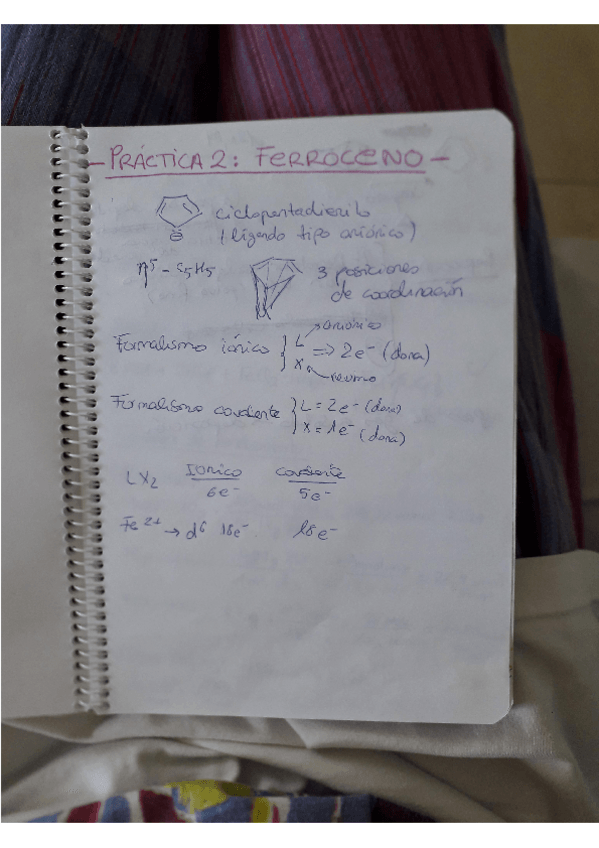 - PRÁCTICA 2: FERROCENO -
ciclopentadienilo
(ligando tipo aniónico)
η⁵ - C₅H₅
3 posiciones
de coordinación
aniónico
Formalismo iónico { L X => 2e⁻ (dona)
Formalismo covalente { L = 2e⁻ (dona)
X = 1e⁻ (dona)
LX₂ IONICO covalente
6e⁻ 5e⁻
Fe²⁺ → d⁶ 18e⁻ 18e⁻